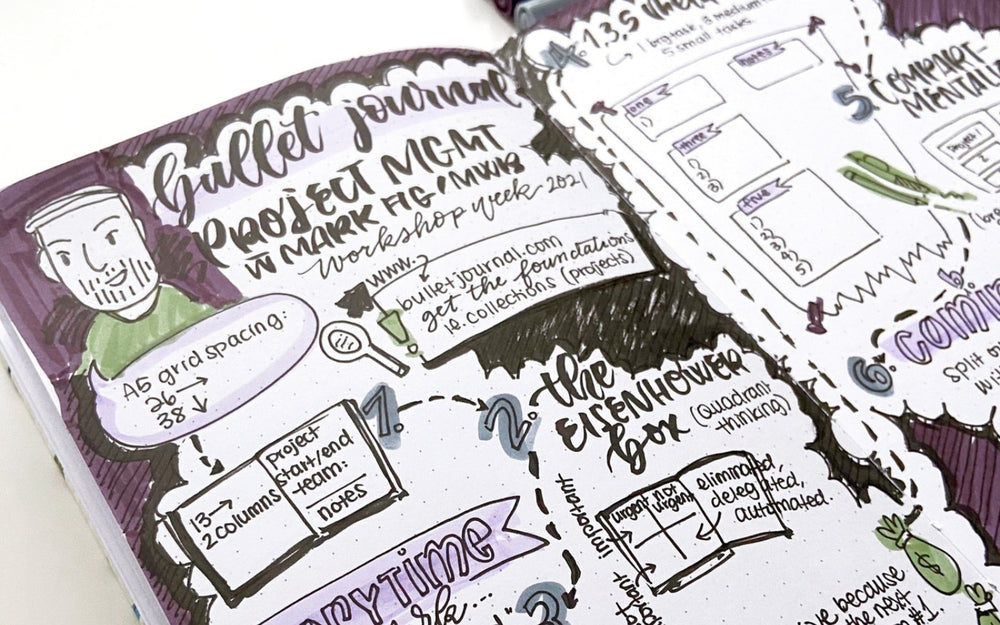 bullet journal
PROJECT MGMT
W MARK FIG / MWB
workshop week 2021
www.
bulletjournal.com
get the foundations
ie. collections (projects)
A5 grid spacing:
26 →
38 ↓
1.
13 →
2 columns
project
start/end
team:
notes
2.
the
EISENHOWER
box
(Quadrant
thinking)
urgent
not
urgent
important
eliminated,
delegated,
automated.
3
because
the next
#1.
4.
1, 3, 5
1 big task, 3 medium
5 small tasks.
one
1)
notes
three
1)
2)
3)
five
1)
2)
3)
4)
5)
5.
COMPART-
MENTALI
project 1
6.
split